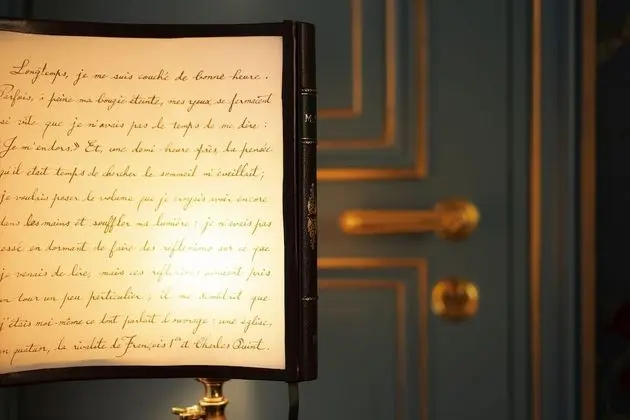 Longtemps, je me suis couché de bonne heure.
Parfois, à peine ma bougie éteinte, mes yeux se fermaient
si vite que je n'avais pas le temps de me dire :
"Je m'endors." Et, une demi-heure après, la pensée
qu'il était temps de chercher le sommeil m'éveillait ;
je voulais poser le volume que je croyais avoir encore
dans les mains et souffler ma lumière ; je n'avais pas
cessé en dormant de faire des réflexions sur ce que
je venais de lire, mais ces réflexions avaient pris
un tour un peu particulier ; il me semblait que
j'étais moi-même ce dont parlait l'ouvrage : une église,
un quatuor, la rivalité de François 1er et Charles Quint.
M